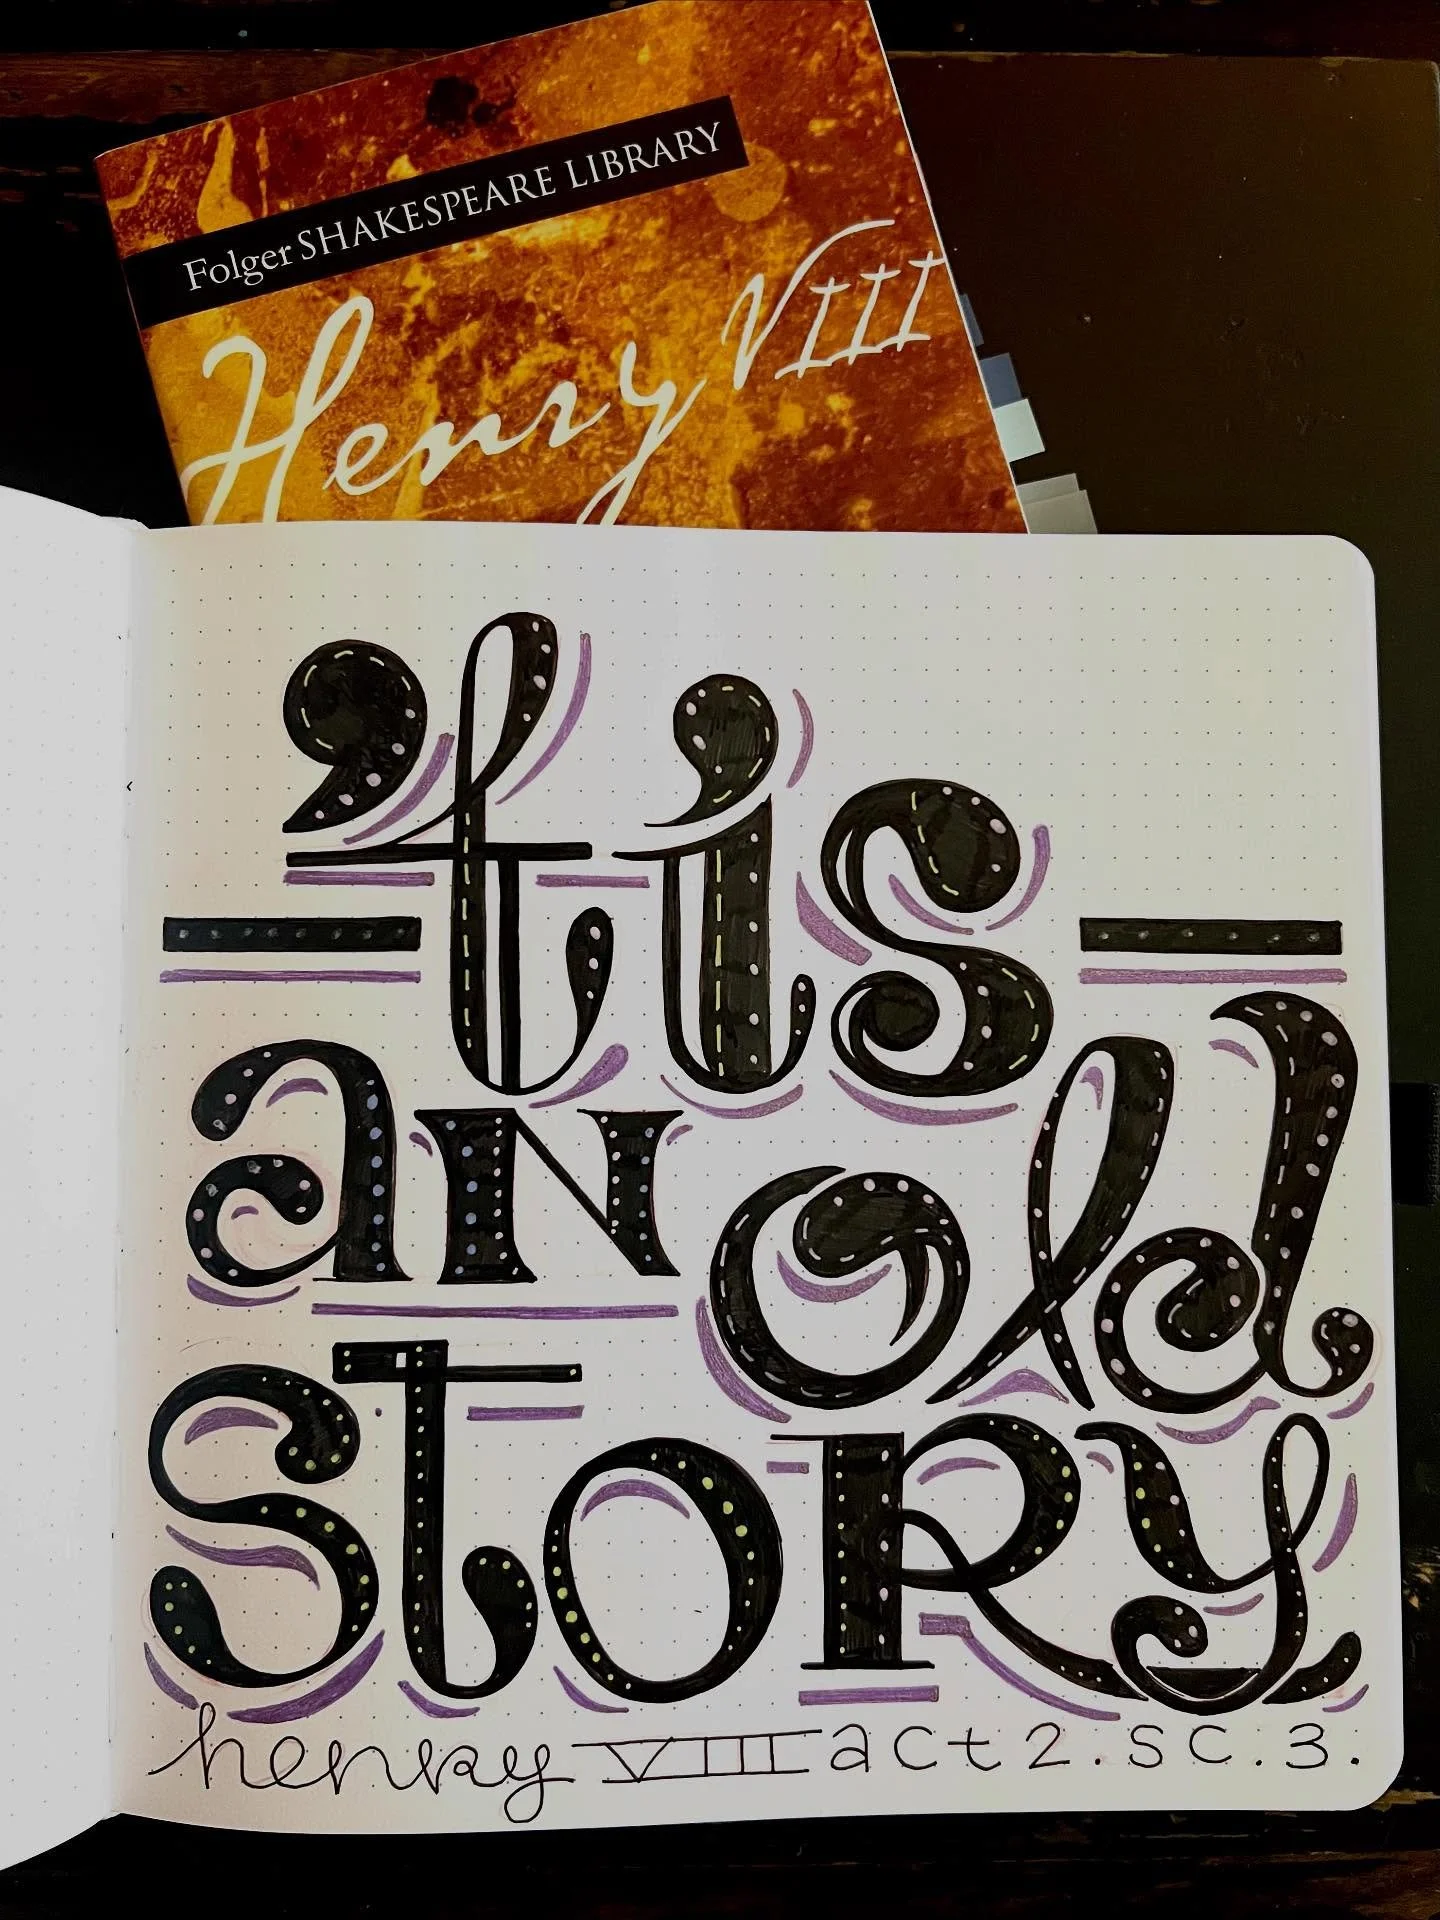 Folger SHAKESPEARE LIBRARY
Henry VIII
'tis
an old
story
henry VIII act 2. sc. 3.